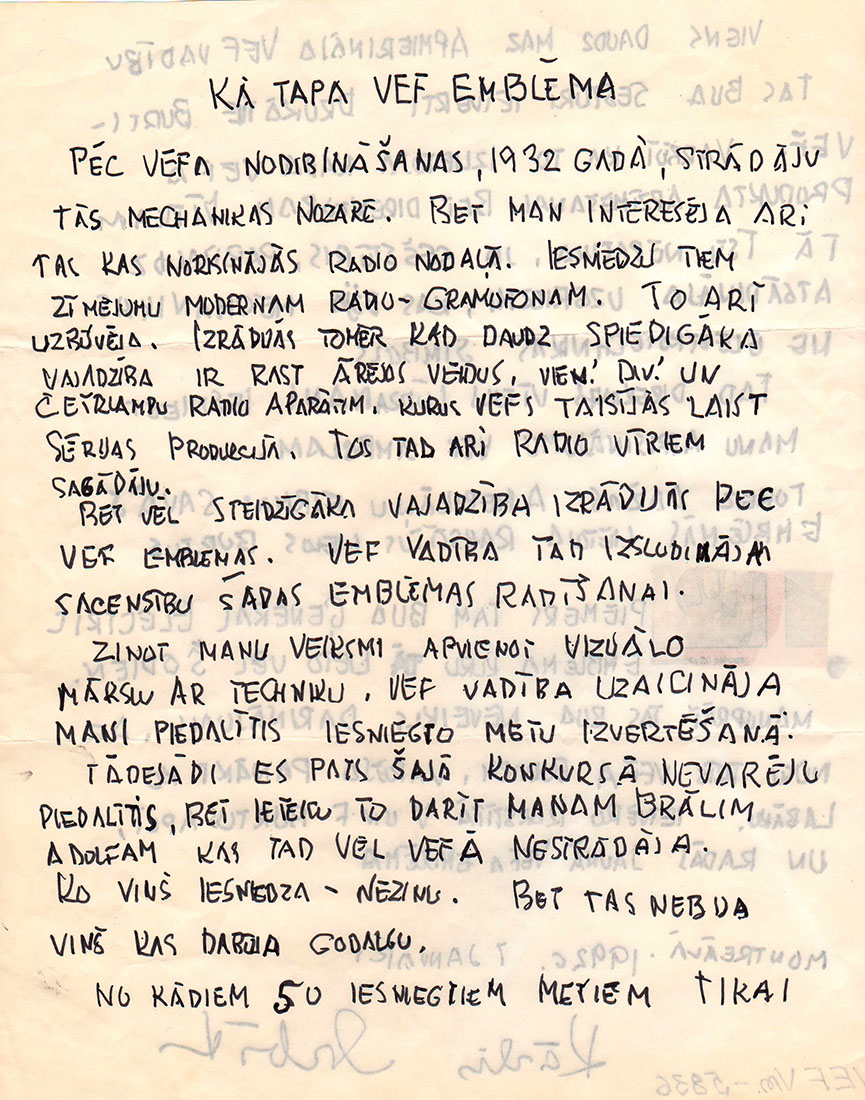 KĀ TAPA VEF EMBLĒMA
PĒC VEFA NODIBINĀŠANAS, 1932 GADĀ, STRĀDĀJU
TĀS MECHANIKAS NOZARĒ. BET MAN INTERESĒJA ARĪ
TAS KAS NORISINĀJĀS RADIO NODAĻĀ. IESNIEDZU TIEM
ZĪMĒJUMU MODERNAM RADIO-GRAMOFONAM. TO ARĪ
UZBŪVĒJA. IZRĀDIJĀS TOMĒR KAD DAUDZ SPIEDIGĀKA
VAJADZĪBA IR RAST ĀRĒJOS VEIDUS, VIEN! DIV! UN
ČETRLAMPU RADIO APARĀTIM. KURUS VEFS TAISĪJĀS LAIST
SĒRIJAS PRODUKCIJĀ. TOS TAD ARĪ RADIO VĪRIEM
SAGĀDĀJU.
BET VĒL STEIDZĪGĀKA VAJADZĪBA IZRĀDIJĀS PĒC
VEF EMBLEMAS. VEF VADĪBA TAD IZSLUDINĀJA
SACENSĪBU ŠĀDAS EMBLĒMAS RADĪŠANAI.
ZINOT MANU VEIKSMI APVIENOT VIZUĀLO
MĀKSLU AR TECHNIKU, VEF VADĪBA UZAICINĀJA
MANI PIEDALĪTIS IESNIEGTO METU IZVERTĒŠANĀ.
TĀDEJĀDI ES PATS ŠAJĀ KONKURSĀ NEVARĒJU
PIEDALĪTIS, BET IETEICU TO DARĪT MANAM BRĀLIM
ADOLFAM KAS TAD VĒL VEFĀ NESTRĀDĀJA.
KO VIŅŠ IESNIEDZA - NEZINU. BET TAS NEBUA
VIŅŠ KAS DABUJA GODALGU.
NO KĀDIEM 50 IESNIEGTIEM METIEM TIKAI